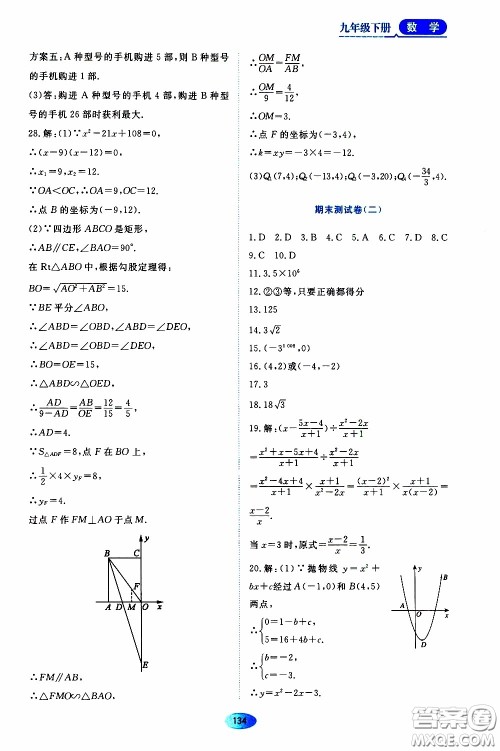 九年级下册 数学
方案五:A 种型号的手机购进 5 部,则 B 种型号
的手机购进 1 部.
(3)答:购进 A 种型号的手机 4 部,购进 B 种型
号的手机 26 部时获利最大.
28.解:(1)∵x²-21x+108=0,
∴(x-9)(x-12)=0,
∴x₁=9,x₂=12.
∵OA<OC,∴OA=9,OC=12.
∴点 B 的坐标为(-9,12).
(2)∵四边形 ABCO 是矩形,
∴AB∥CE,∠BAO=90°.
在 Rt△ABO 中,根据勾股定理得:
BO=√(AO²+AB²)=15.
∵BE 平分∠ABO,
∴∠ABD=∠OBD,∠ABD=∠DEO,
∴∠OBD=∠ABD=∠DEO,
∴BO=OE=15,
∴△ABD∽△OED,
∴AD/(9-AD)=AB/OE=12/15=4/5,
∴AD=4.
∵S△ADF=8,点 F 在 BO 上,
∴1/2×4×yF=8,
∴yF=4.
过点 F 作 FM⊥AO 于点 M.
y
B C
F
A D M O x
E
∴FM∥AB,
∴△FMO∽△BAO,
∴OM/OA=FM/AB,
∴OM/9=4/12,
∴OM=3.
∴点 F 的坐标为(-3,4),
∴k=xy=-3×4=-12.
(3)Q₁(7,4);Q₂(-13,4);Q₃(-3,20),Q₄(-34/3,4).
期末测试卷(二)
1.D 2.D 3.A 4.C 5.D 6.D 7.D 8.C
9.C 10.D
11.3.5×10⁶
12.②③等,只要正确都得分
13.125
14.3√2
15.(-3¹⁰⁰⁸,0)
16.(4,2)或(-4,-2)
17.3
18.18√3
19.解:(x-(5x-4)/(x+1))÷(x²-2x)/(x+1)
=(x²+x-5x+4)/(x+1)÷(x²-2x)/(x+1)
=(x²-4x+4)/(x+1)×(x+1)/(x²-2x)=(x-2)²/(x+1)×(x+1)/(x(x-2))=
(x-2)/x.
当 x=3 时,原式=(x-2)/x=1/3.
20.解:(1)∵抛物线 y=x²+
bx+c经过 A(-1,0)和 B(4,5)
两点,
∴{0=1-b+c,
5=16+4b+c,
∴{b=-2,
c=-3.
∴y=x²-2x-3.
y
B
A O x
134
答案圈
MXQE.COM